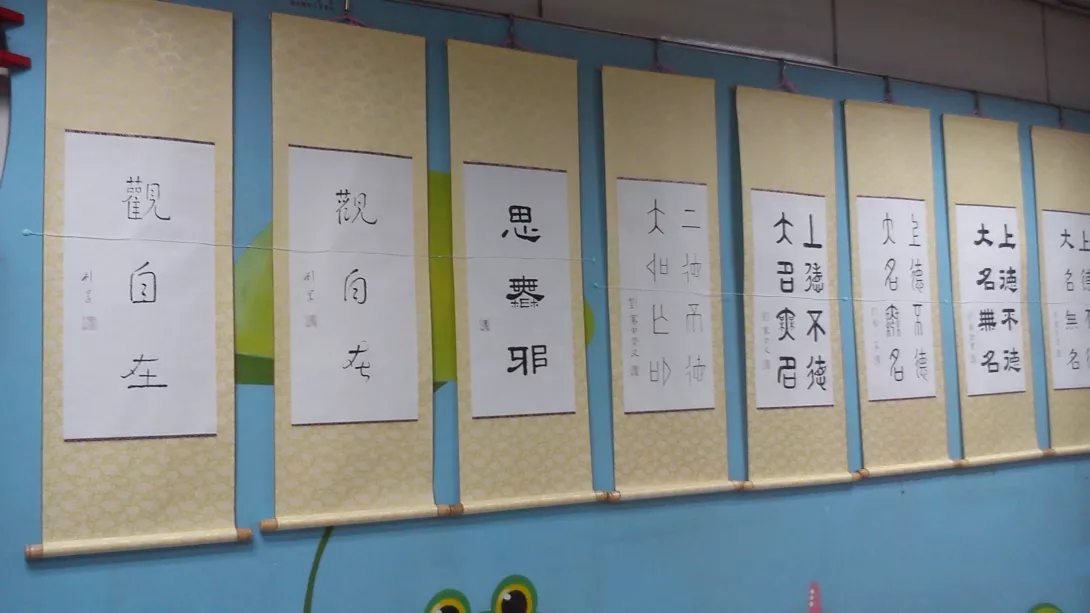 觀自在
觀自在
思無邪
上德不德
大名亡名
上德不德
大名無名
上德不德
大名無名
上德不德
大名無名
上德不德
大名無名